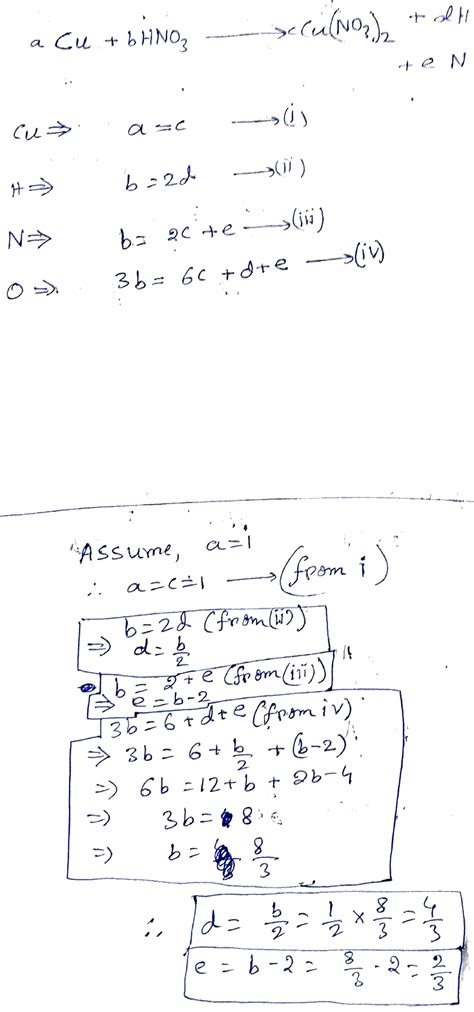 a Cu + bHNO₃ ⟶ cCu(NO₃)₂ + dH
+ e N
Cu ⇒ a = c ⟶ (i)
H ⇒ b = 2d ⟶ (ii)
N ⇒ b = 2c + e ⟶ (iii)
O ⇒ 3b = 6c + d + e ⟶ (iv)
Assume, a = 1
∴ a = c = 1 ⟶ (from i)
b = 2d (from (ii))
⇒ d = b/2
b = 2 + e (from (iii))
⇒ e = b - 2
3b = 6 + d + e (from iv)
⇒ 3b = 6 + b/2 + (b-2)
⇒ 6b = 12 + b + 2b - 4
⇒ 3b = 8
⇒ b = 8/3
∴ d = b/2 = 1/2 × 8/3 = 4/3
e = b - 2 = 8/3 - 2 = 2/3